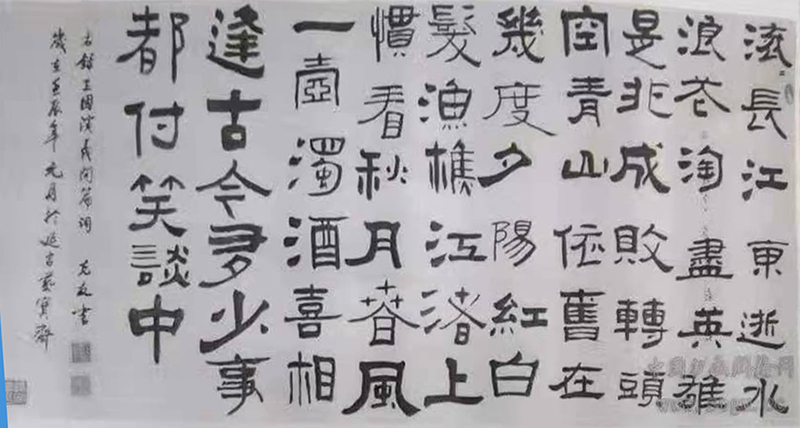 滚〻長江東逝水
浪花淘盡英雄
是非成敗轉頭
空青山依舊在
幾度夕陽紅白
髮漁樵江渚上
慣看秋月春風
一壺濁酒喜相
逢古今多少事
都付笑談中
右錄三國演義開篇詞 克友書
歲在壬辰年元月於延吉藝寶齋